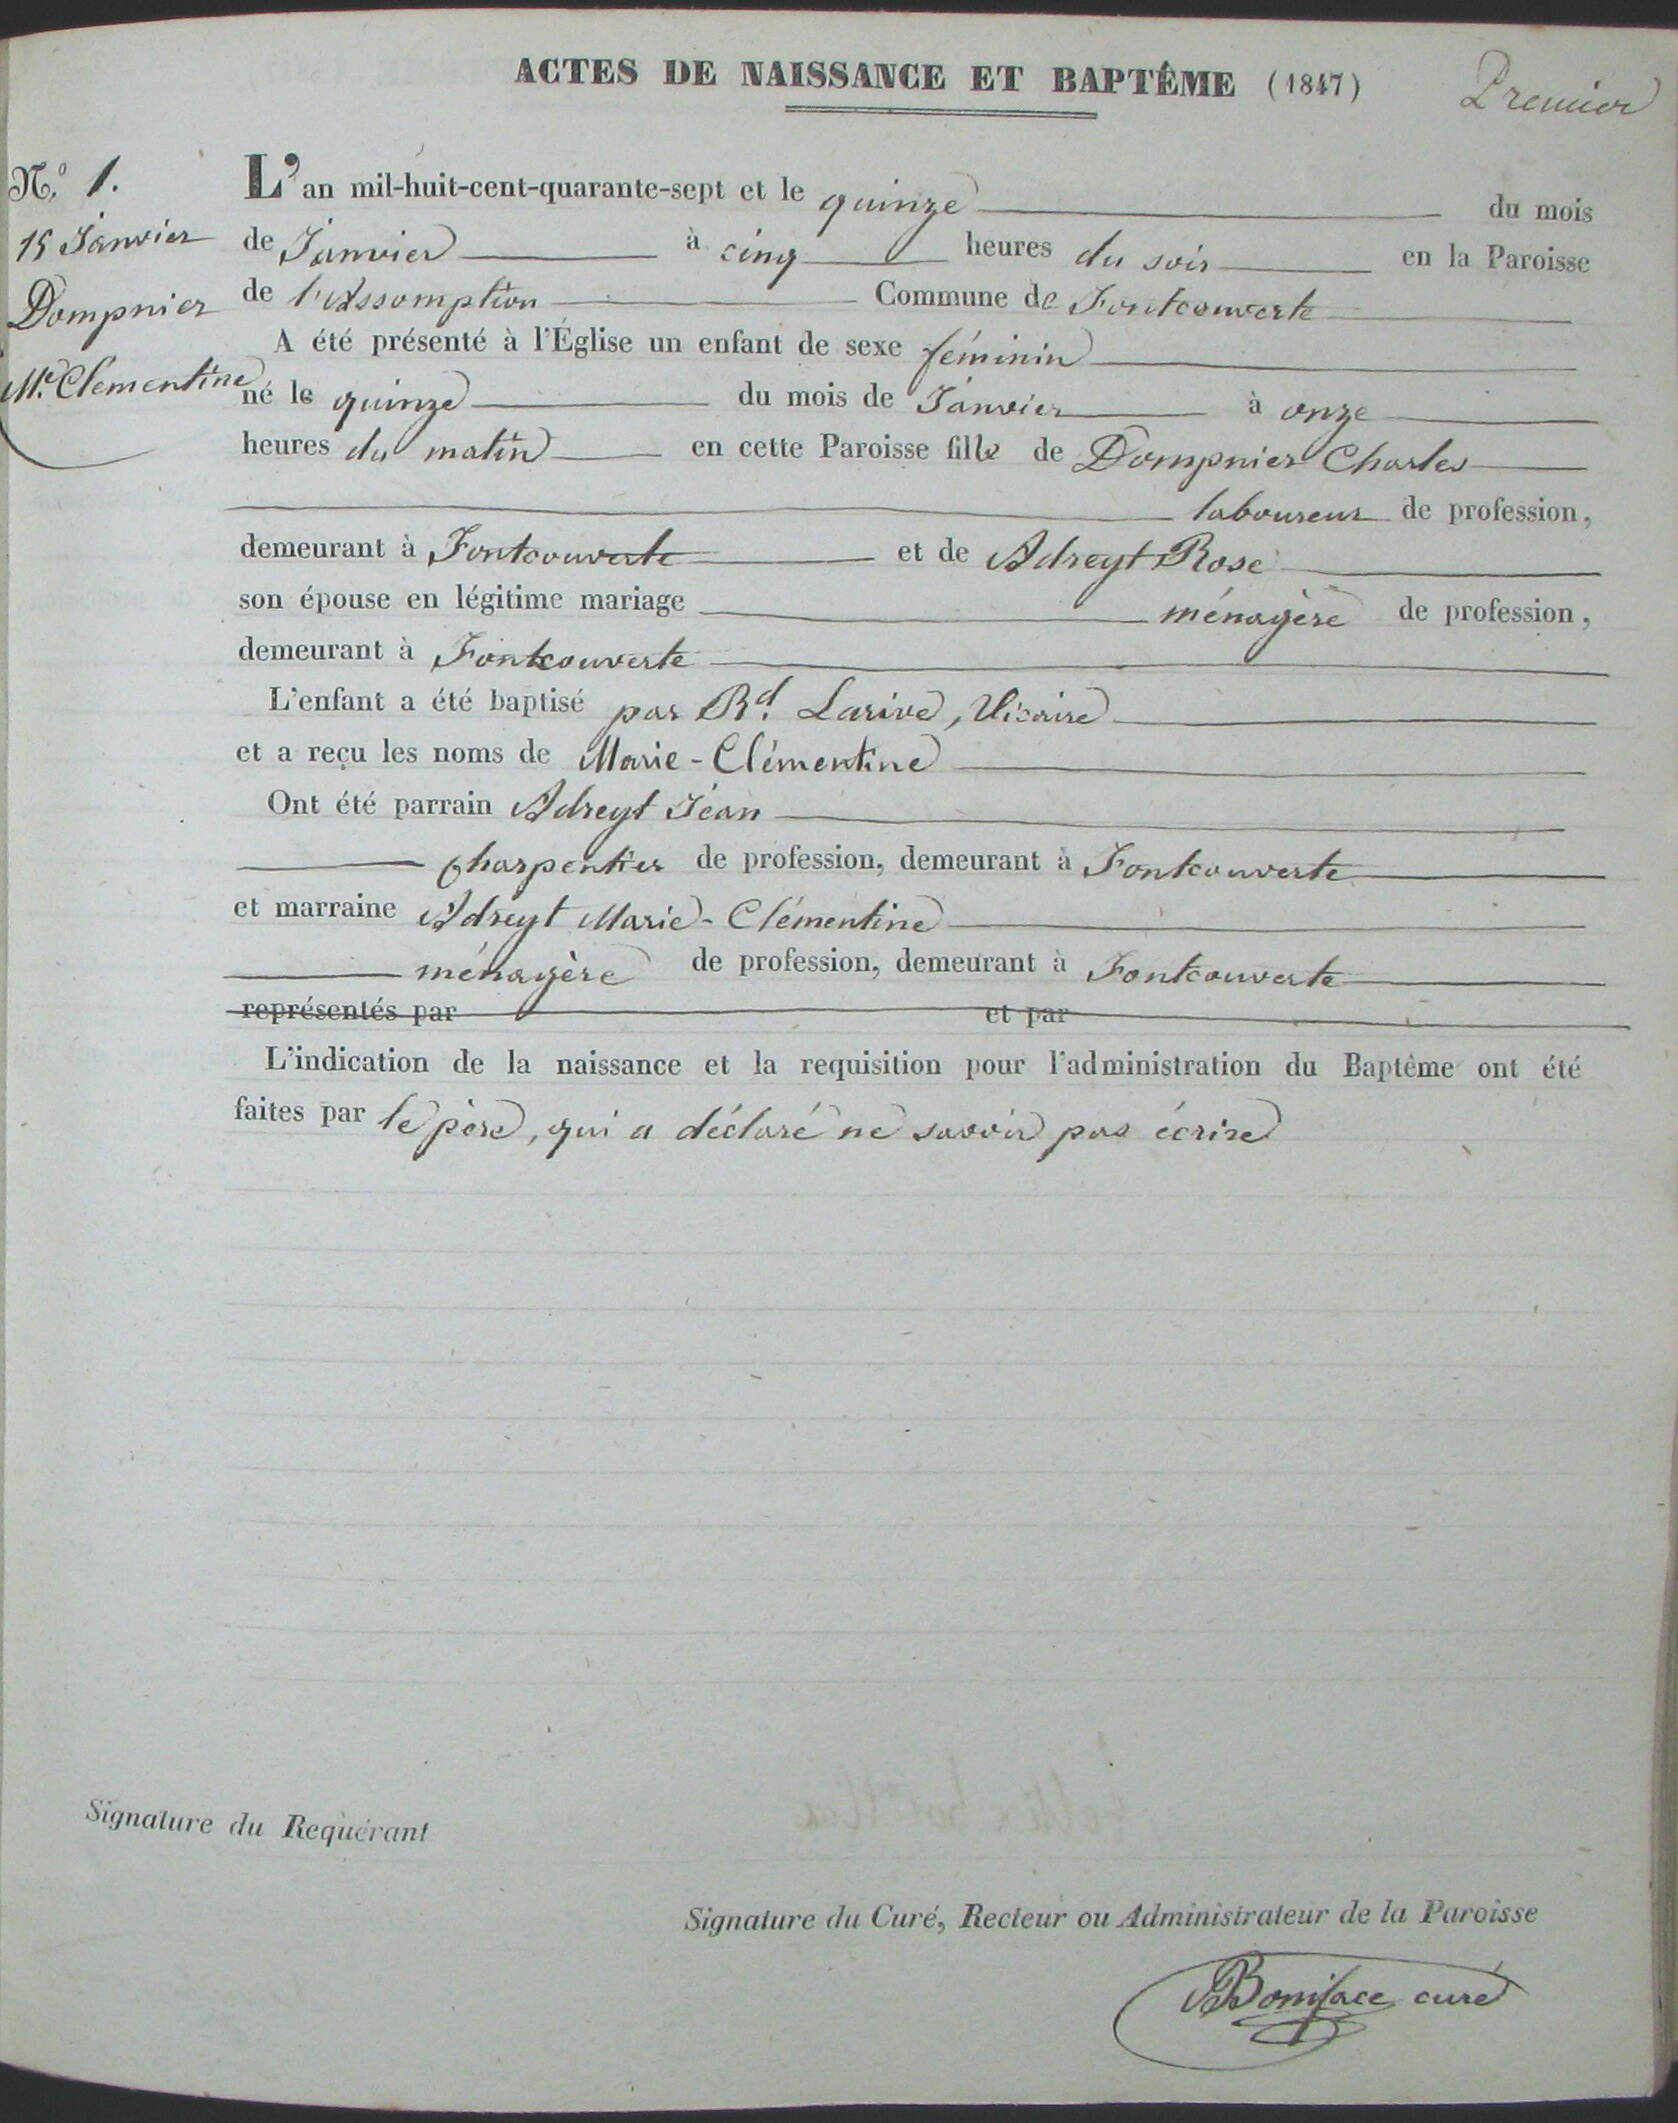 ACTES DE NAISSANCE ET BAPTÊME (1847)
Premier
N.° 1.
15 Janvier
Dompnier
M.e Clementine
L'an mil-huit-cent-quarante-sept et le quinze du mois
de Janvier à cinq heures du soir en la Paroisse
de l'Assomption Commune de Fontcouverte
A été présenté à l'Église un enfant de sexe féminin
né le quinze du mois de Janvier à onze
heures du matin en cette Paroisse fille de Dompnier Charles
laboureur de profession,
demeurant à Fontcouverte et de Adreyt Rose
son épouse en légitime mariage ménagère de profession,
demeurant à Fontcouverte
L'enfant a été baptisé par Rd. Larive, Vicaire
et a reçu les noms de Marie-Clémentine
Ont été parrain Adreyt Jean
charpentier de profession, demeurant à Fontcouverte
et marraine Adreyt Marie-Clémentine
ménagère de profession, demeurant à Fontcouverte
représentés par et par
L'indication de la naissance et la requisition pour l'administration du Baptême ont été
faites par le père, qui a déclaré ne savoir pas écrire
Signature du Requérant
Signature du Curé, Recteur ou Administrateur de la Paroisse
Boniface curé